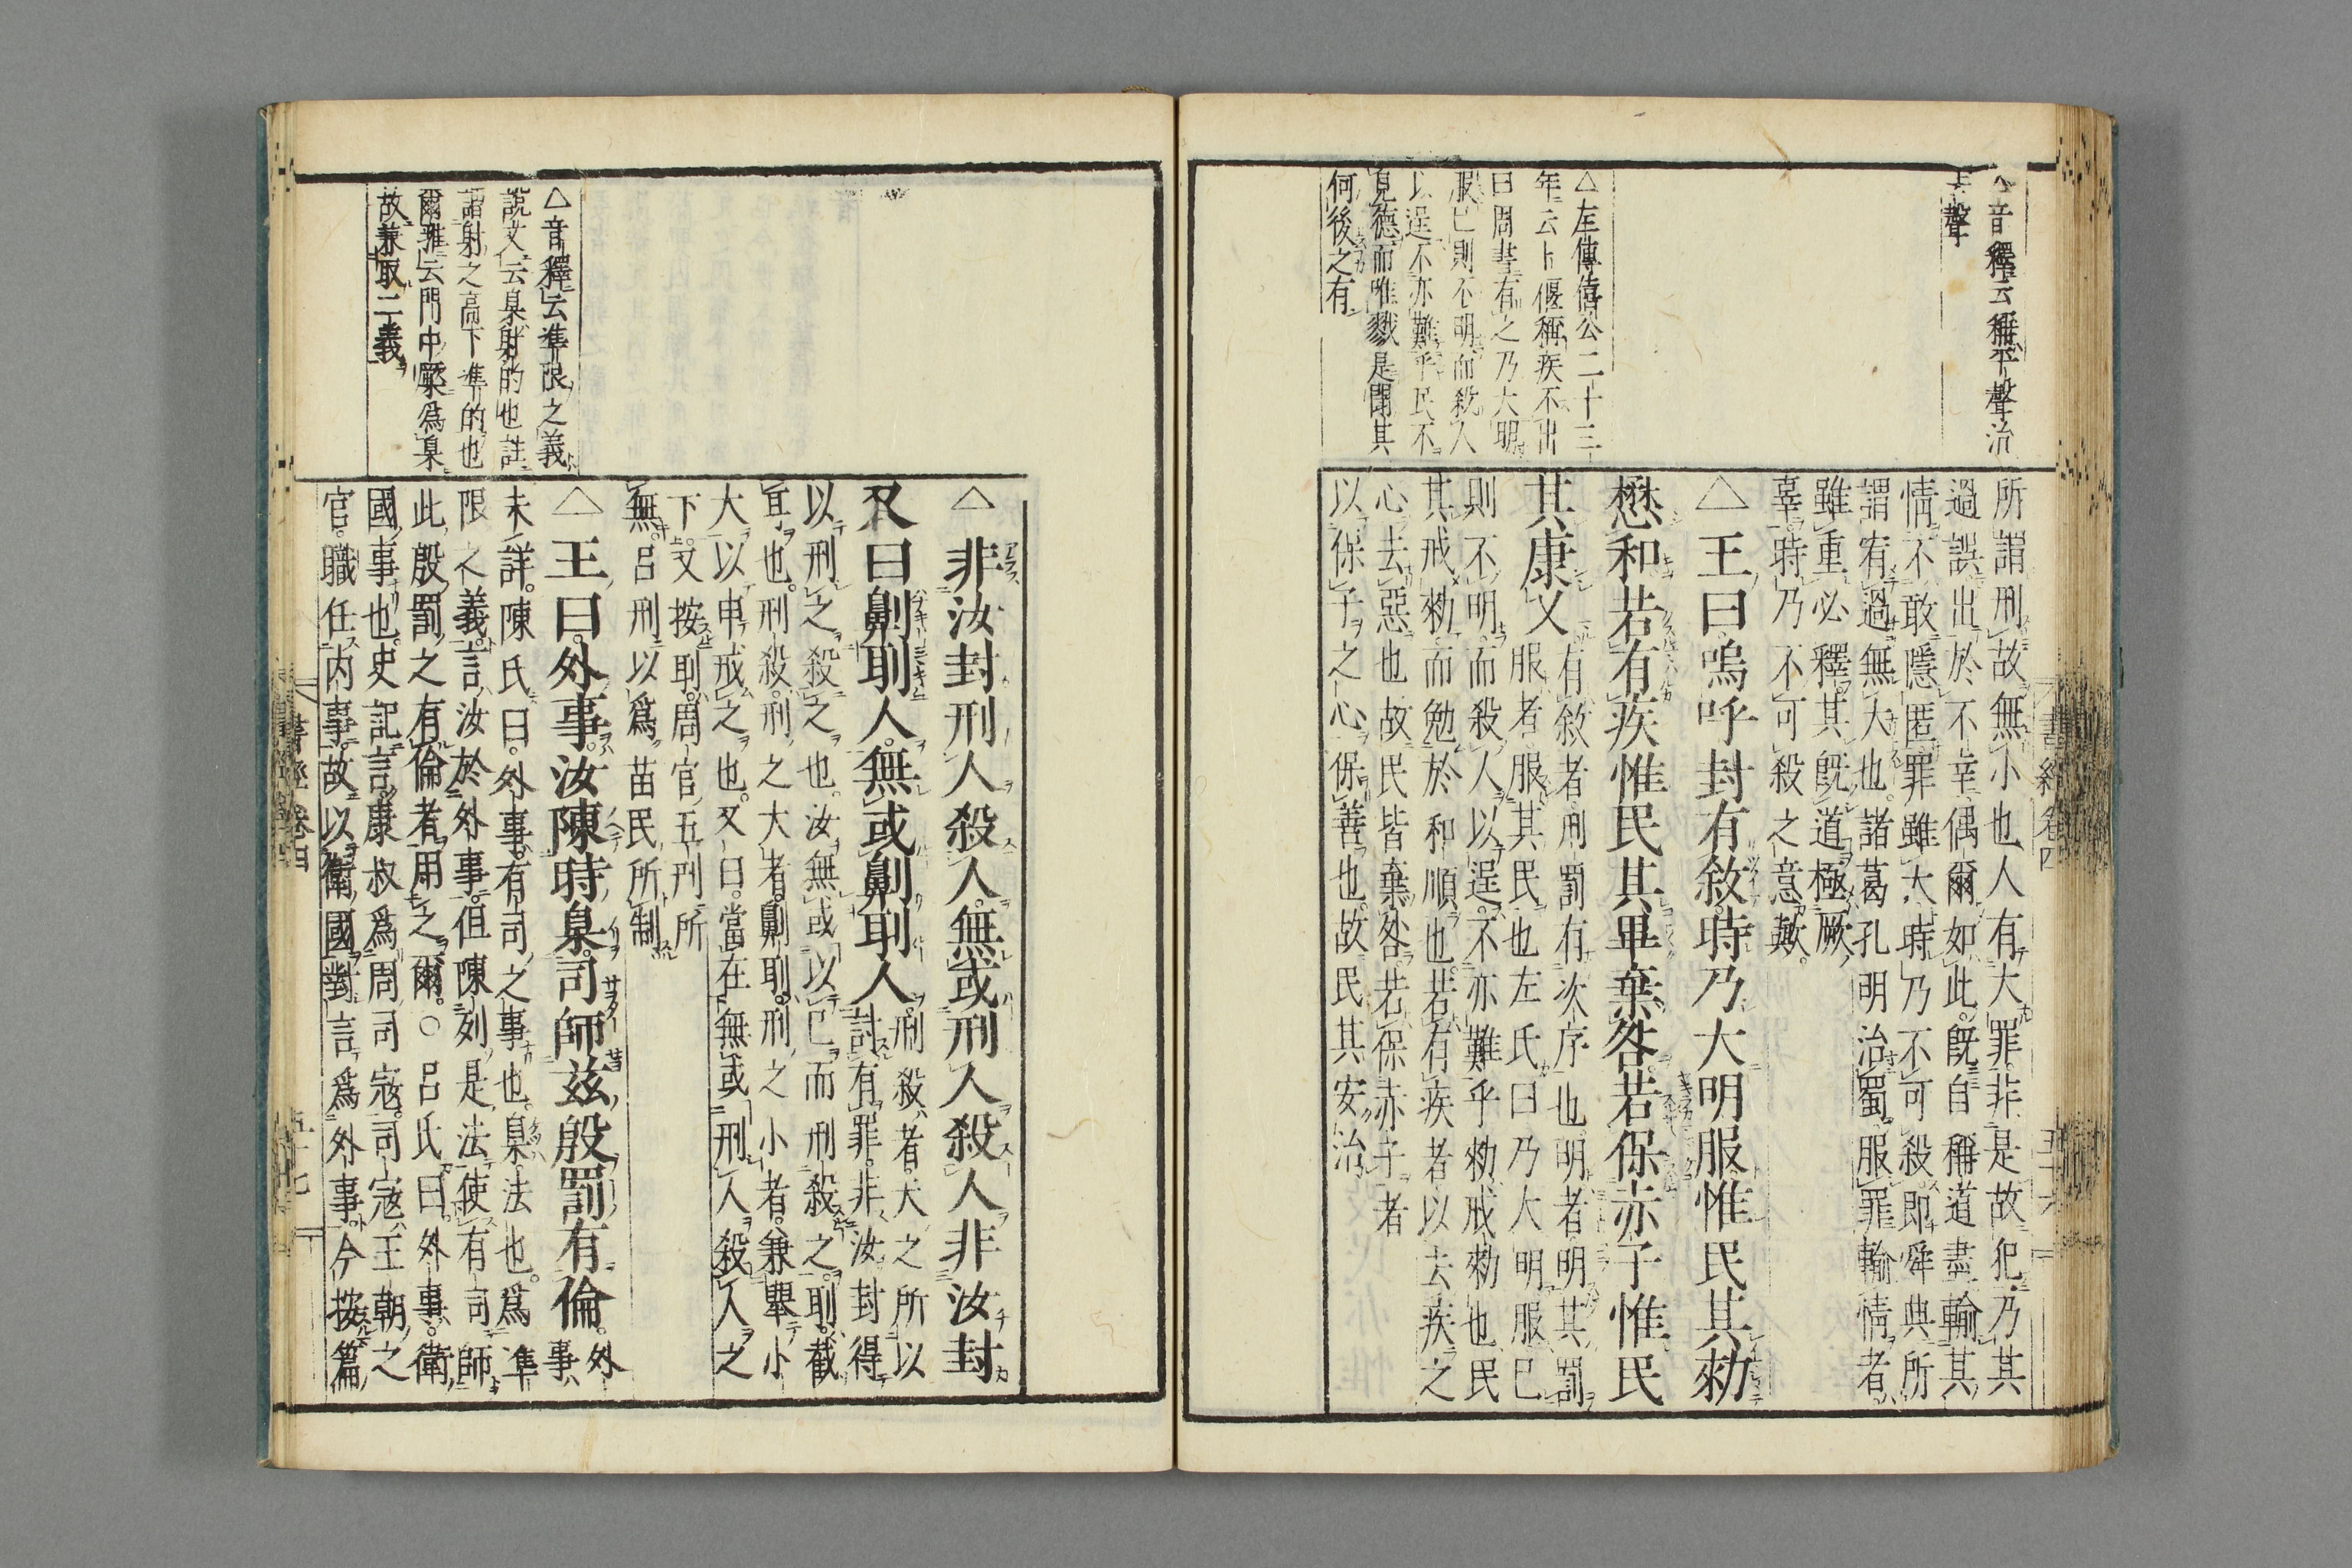 △音釋云稱平聲治
去聲
△左傳僖公二十三
年云卜偃稱疾不出
曰周書有之乃大明
服己則不明而殺人
以逞不亦難乎民不
見德而唯戮是聞其
何後之有
所謂刑故無小也人有大罪非是故犯乃其
過誤出於不幸偶爾如此既自稱道盡輸其
情不敢隱匿罪雖大時乃不可殺即舜典所
謂宥過無大也諸葛孔明治蜀服罪輸情者
雖重必釋其既道極厥
辜時乃不可殺之意歟
△王曰嗚呼封有敘時乃大明服惟民其勑
懋和若有疾惟民其畢棄咎若保赤子惟民
其康乂
有敘者刑罰有次序也明者明其罰
服者服其民也左氏曰乃大明服己
則不明而殺人以逞不亦難乎勑戒勑也民
其戒勑而勉於和順也若有疾者以去疾之
心去惡也故民皆棄咎若保赤子者
以保子之心保善也故民其安治
書經卷四
五十六
△音釋云準限之義
說文云臬射的也註
謂射之高下準的也
爾雅云門中橜爲臬
故兼取二義
△非汝封刑人殺人無或刑人殺人非汝封
又曰劓刵人無或劓刵人
刑殺者天之所以
討有罪非汝封得
以刑之殺之也汝無或以己而刑殺之刵截
耳也刑殺刑之大者劓刵刑之小者兼舉小
大以申戒之也又曰當在無或刑人殺人之
下又按刵周官五刑所
無呂刑以爲苗民所制
△王曰外事汝陳時臬司師茲殷罰有倫
外
事
未詳陳氏曰外事有司之事也臬法也爲準
限之義言汝於外事但陳列是法使有司師
此殷罰之有倫者用之爾○呂氏曰外事衛
國事也史記言康叔爲周司寇司寇王朝之
官職任内事故以衛國對言爲外事今按篇
書經卷四
五十七